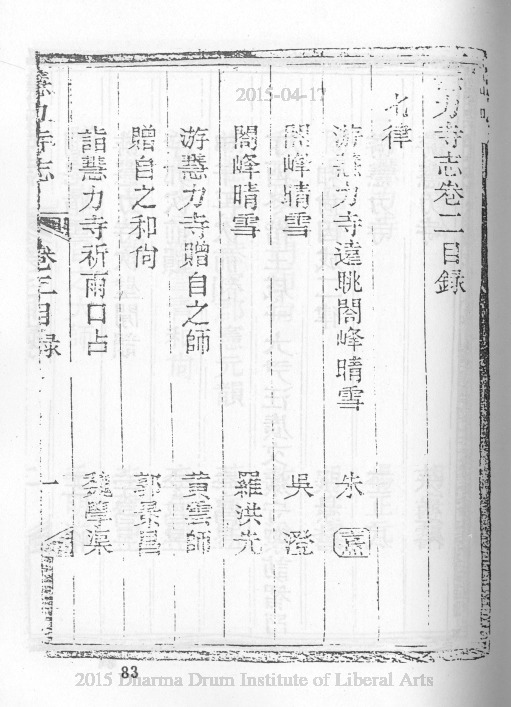 力寺志卷二目録
七律
游慧力寺遠眺閤峰晴雪 朱
閤峰晴雪 吳澄
閤峰晴雪 羅洪先
游慧力寺贈自之師 黃雲師
贈自之和尙 郭景昌
詣慧力寺祈雨口占 魏學渠
慧力寺志 卷二目録 一
2015-04-17
83
2015 Dharma Drum Institute of Liberal Arts